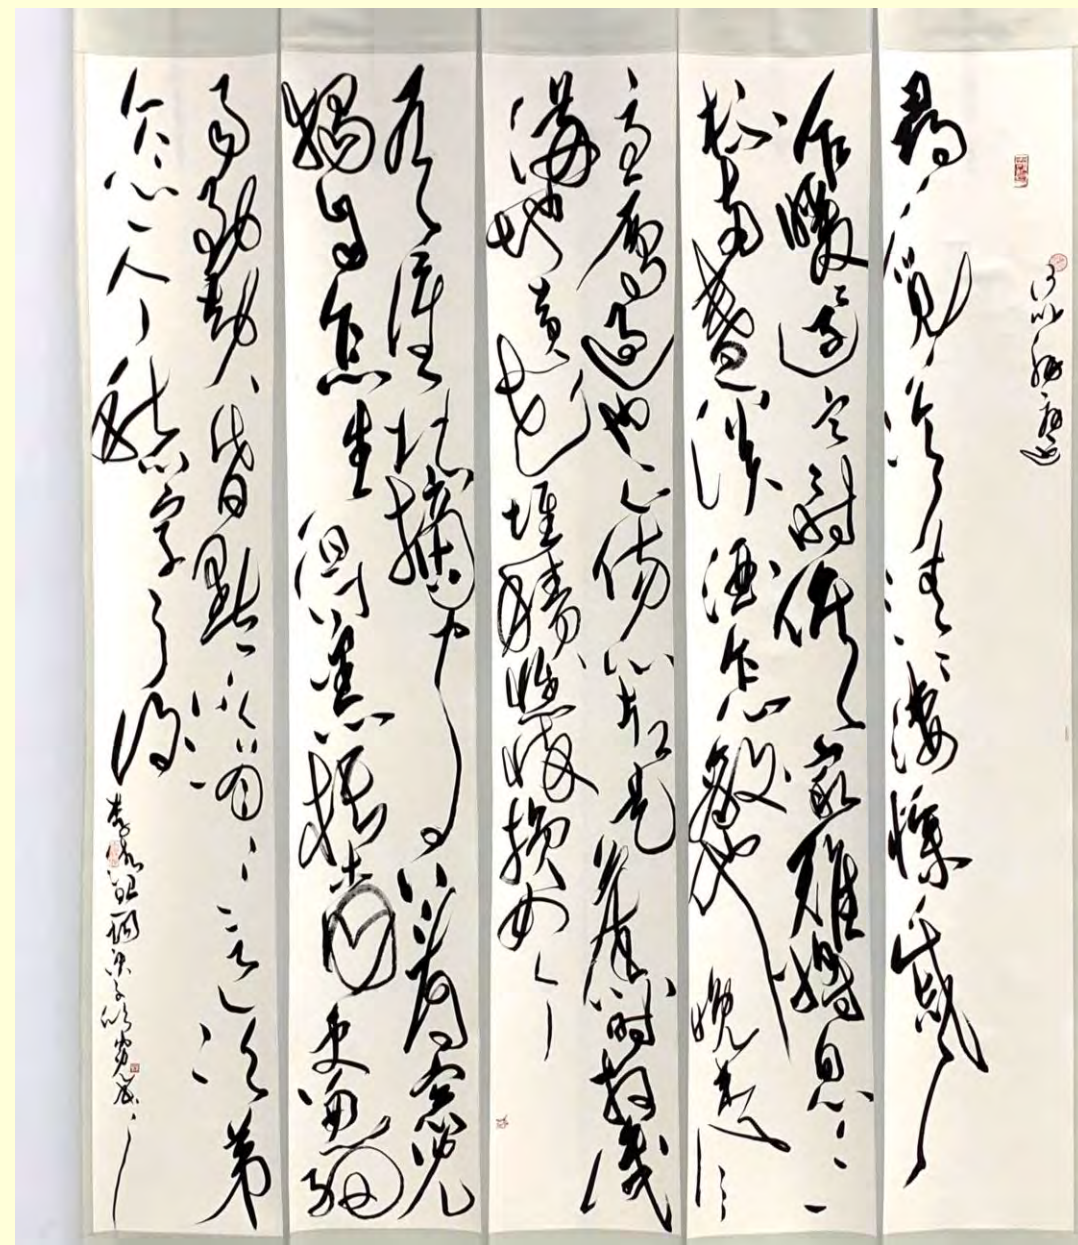 尋〻覓〻冷〻清〻悽慘戚〻
乍暖還寒時候最難將息三
杯兩盞淡酒怎敵他晚來風
急雁過也正傷心却是舊時相識
滿地黃花堆積憔悴損如今
有誰堪摘守著窗兒
獨自怎生得黑梧桐更兼細
雨到黃昏點〻滴〻這次第
怎一个愁字了得
李清照